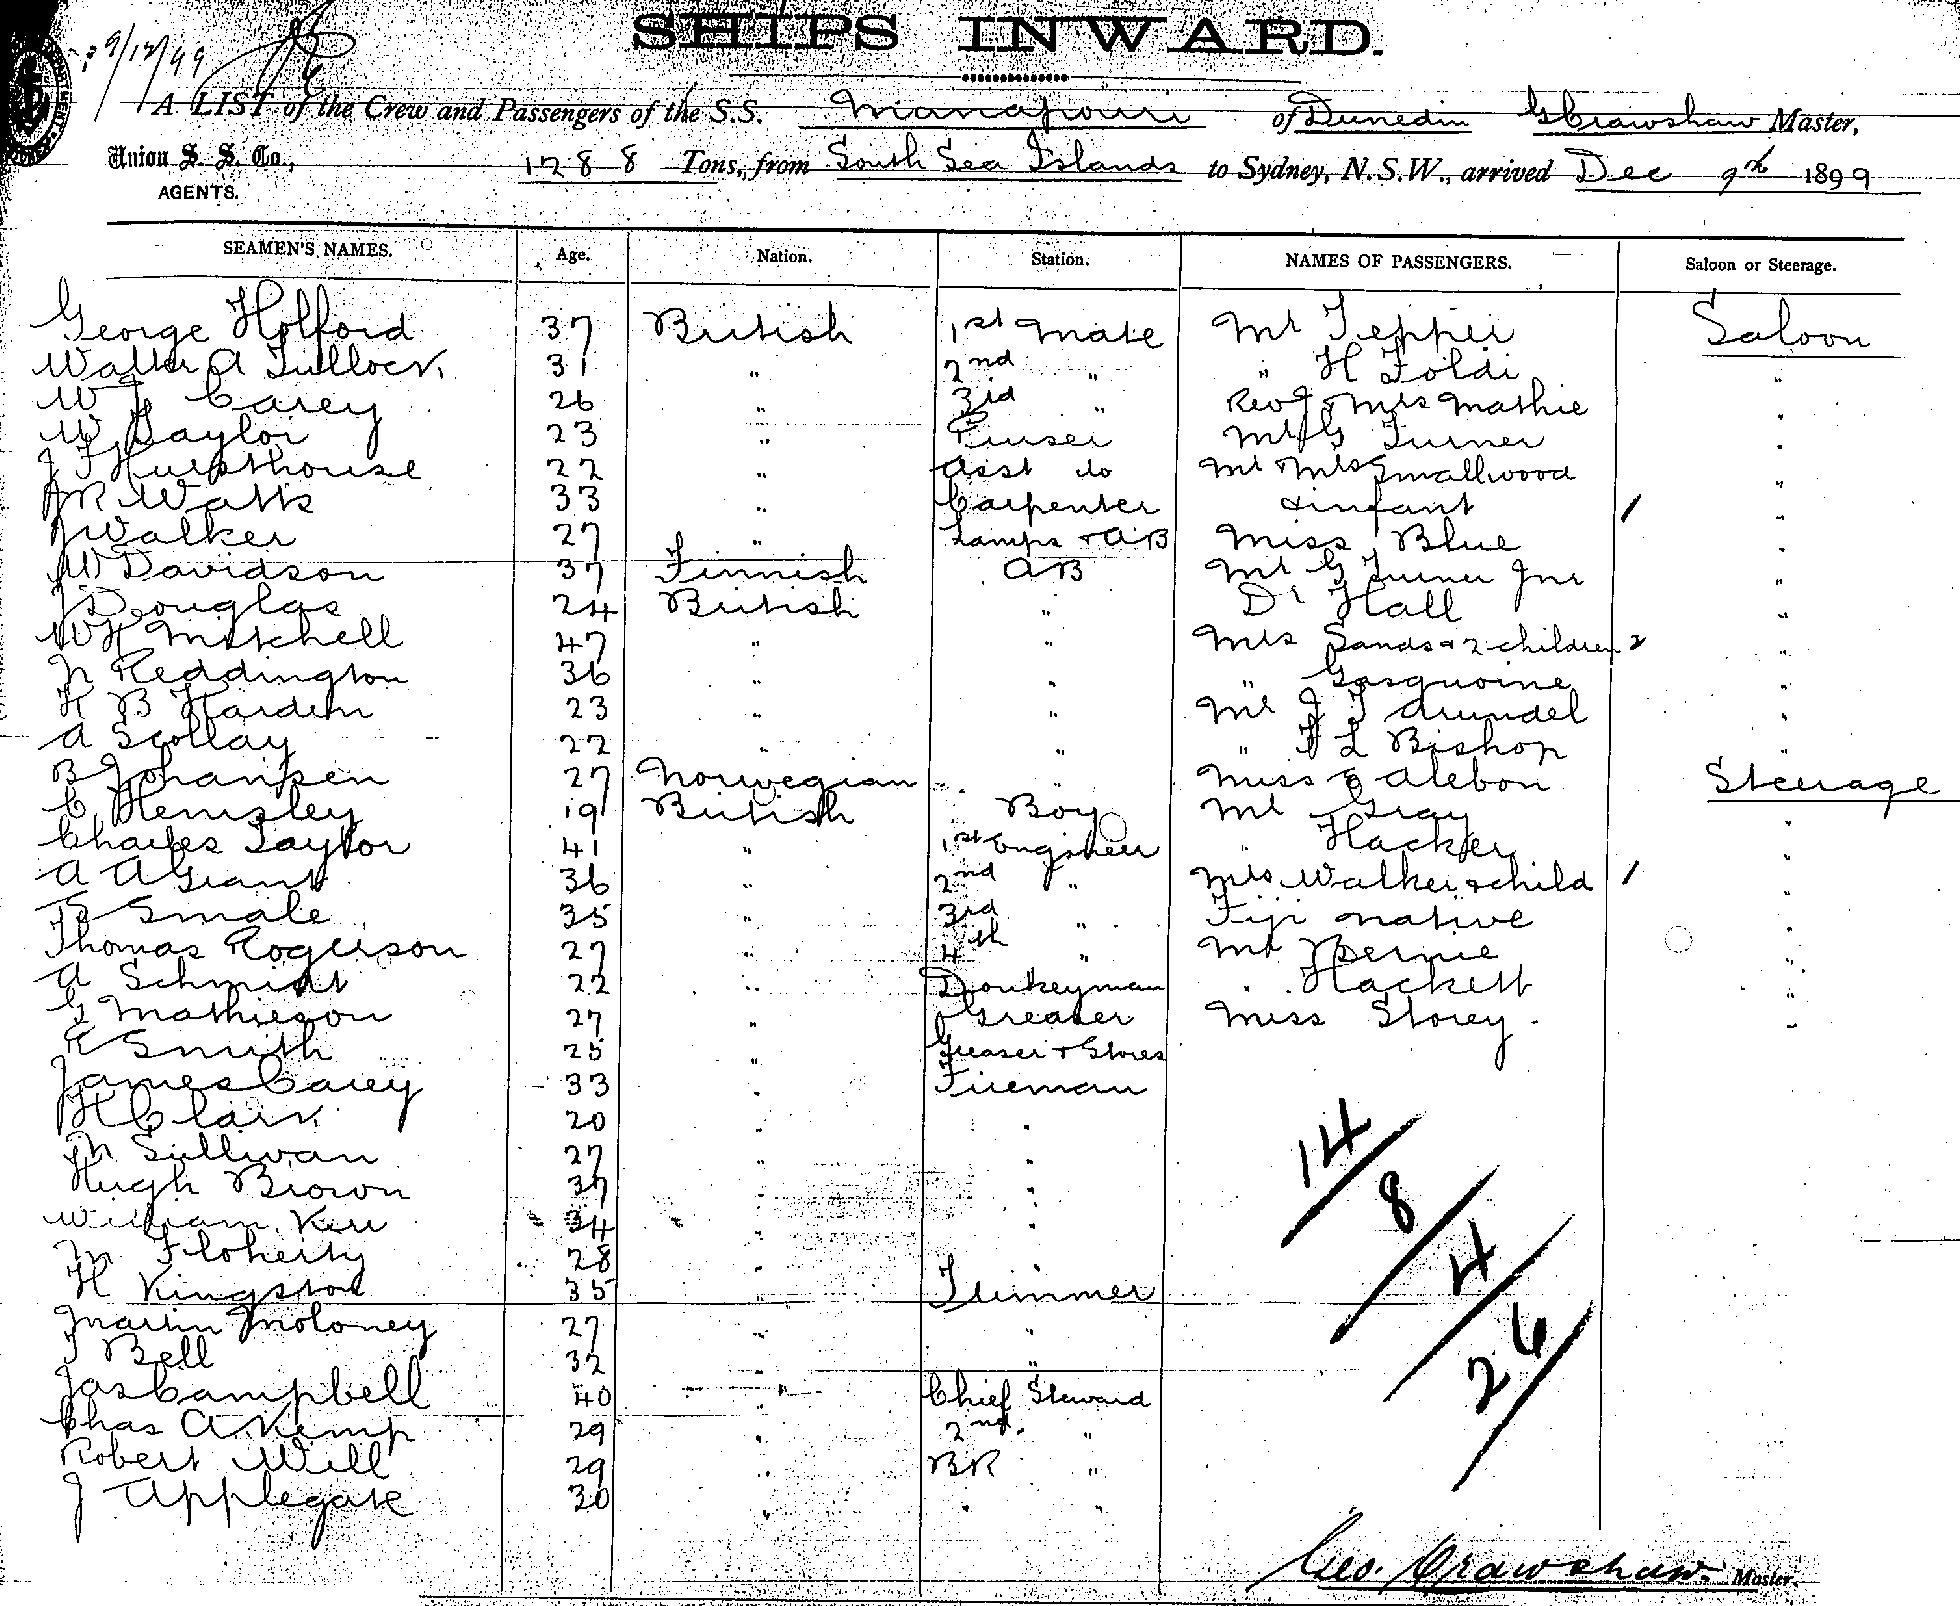 9/12/99
SHIPS INWARD.
A LIST of the Crew and Passengers of the S.S. Manapouri of Dunedin G Crawshaw Master,
Union S. S. Co., AGENTS. 1288 Tons, from South Sea Islands to Sydney, N.S.W., arrived Dec 9th 1899
SEAMEN'S NAMES. Age. Nation. Station. NAMES OF PASSENGERS. Saloon or Steerage.
George Holford 37 British 1st Mate Mr Tepper Saloon
Walter A Tullock 31 " 2nd " " H Foldi "
W J Carey 26 " 3rd " Rev & Mrs Mathie "
W Taylor 23 " Purser Mr G Turner "
J F Hursthouse 22 " Asst do Mr & Mrs Smallwood "
J R Watts 33 " Carpenter & infant 1 "
J Walker 27 " Lamps & AB Miss Blue "
W Davidson 37 Finnish AB Mr G Turner Jnr "
J Douglas 24 British " Dr Hall "
W H Mitchell 47 " " Mrs Sands & 2 children 2 "
N Reddington 36 " " " Gasquoine "
H B Hardem 23 " " Mr J T Arundel "
A Scollay 22 " " " F L Bishop "
B Johansen 27 Norwegian " Miss Alebon Steerage
C Hemsley 19 British Boy Mr Gray "
Charles Taylor 41 " 1st Engineer " Hacker "
A A Grant 36 " 2nd " Mrs Walker & child 1 "
Smale 35 " 3rd " Fiji native "
Thomas Rogerson 27 " 4th " Mr Bernie "
A Schmidt 22 " Donkeyman " Hackett "
G Mathieson 27 " Greaser Miss Storey "
R Smith 25 " Greaser & Stores
James Carey 33 " Fireman
H Clark 20 " "
M Sullivan 27 " "
Hugh Brown 37 " "
William Kerr 34 " "
M Floherty 28 " "
H Kingston 35 " Trimmer
Martin Moloney 27 " "
T Bell 32 " "
Jas Campbell 40 " Chief Steward
Chas A Kemp 29 " 2nd "
Robert Will 29 " BR "
J Applegate 30 " " "
14/
8/
4/
26/
Geo. Crawshaw. Master.